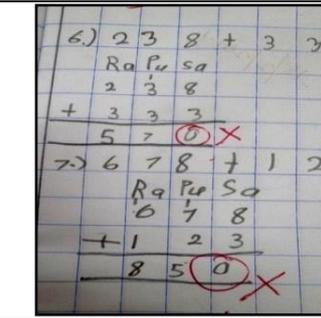 6.) 2 3 8 + 3 3
Ra Pu Sa
2 3 8
+ 3 3 3
5 7 0 X
7.) 6 7 8 + 1 2
Ra Pu Sa
6 7 8
+ 1 2 3
8 5 0 X